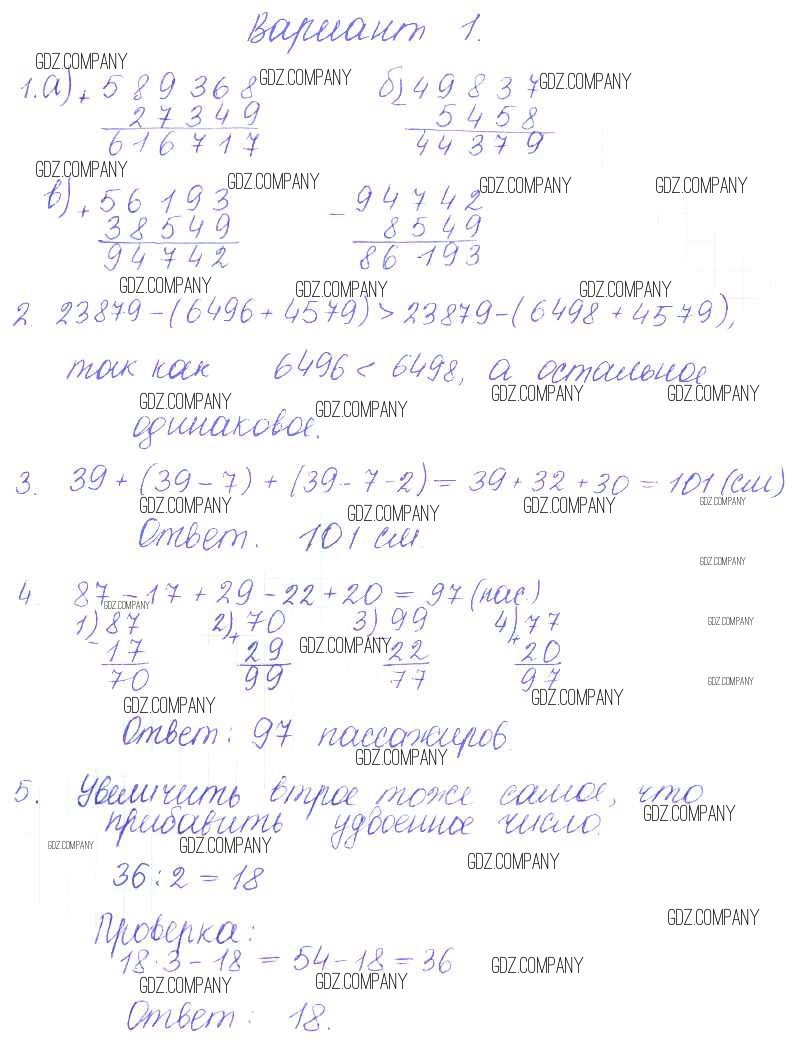 Вариант 1.
GDZ.COMPANY
1. а) + 589368 GDZ.COMPANY б) - 49837 GDZ.COMPANY
27349 5458
616717 44379
GDZ.COMPANY GDZ.COMPANY GDZ.COMPANY GDZ.COMPANY
в) + 56193 - 94742
38549 8549
94742 86193
GDZ.COMPANY GDZ.COMPANY GDZ.COMPANY
2. 23879 - (6496 + 4579) > 23879 - (6498 + 4579),
так как 6496 < 6498, а остальное
GDZ.COMPANY GDZ.COMPANY GDZ.COMPANY GDZ.COMPANY
одинаковое.
3. 39 + (39 - 7) + (39 - 7 - 2) = 39 + 32 + 30 = 101 (см)
GDZ.COMPANY GDZ.COMPANY GDZ.COMPANY GDZ.COMPANY
Ответ. 101 см.
GDZ.COMPANY
4. 87 - 17 + 29 - 22 + 20 = 97 (пас.)
GDZ.COMPANY
1) 87 2) 70 3) 99 4) 77 GDZ.COMPANY
- 17 + 29 GDZ.COMPANY 22 + 20
70 99 77 97 GDZ.COMPANY
GDZ.COMPANY GDZ.COMPANY
Ответ: 97 пассажиров.
GDZ.COMPANY
5. Увеличить втрое тоже самое, что
GDZ.COMPANY
прибавить удвоенное число.
GDZ.COMPANY GDZ.COMPANY GDZ.COMPANY
36 : 2 = 18
GDZ.COMPANY
Проверка:
18 · 3 - 18 = 54 - 18 = 36 GDZ.COMPANY
GDZ.COMPANY GDZ.COMPANY
Ответ: 18.